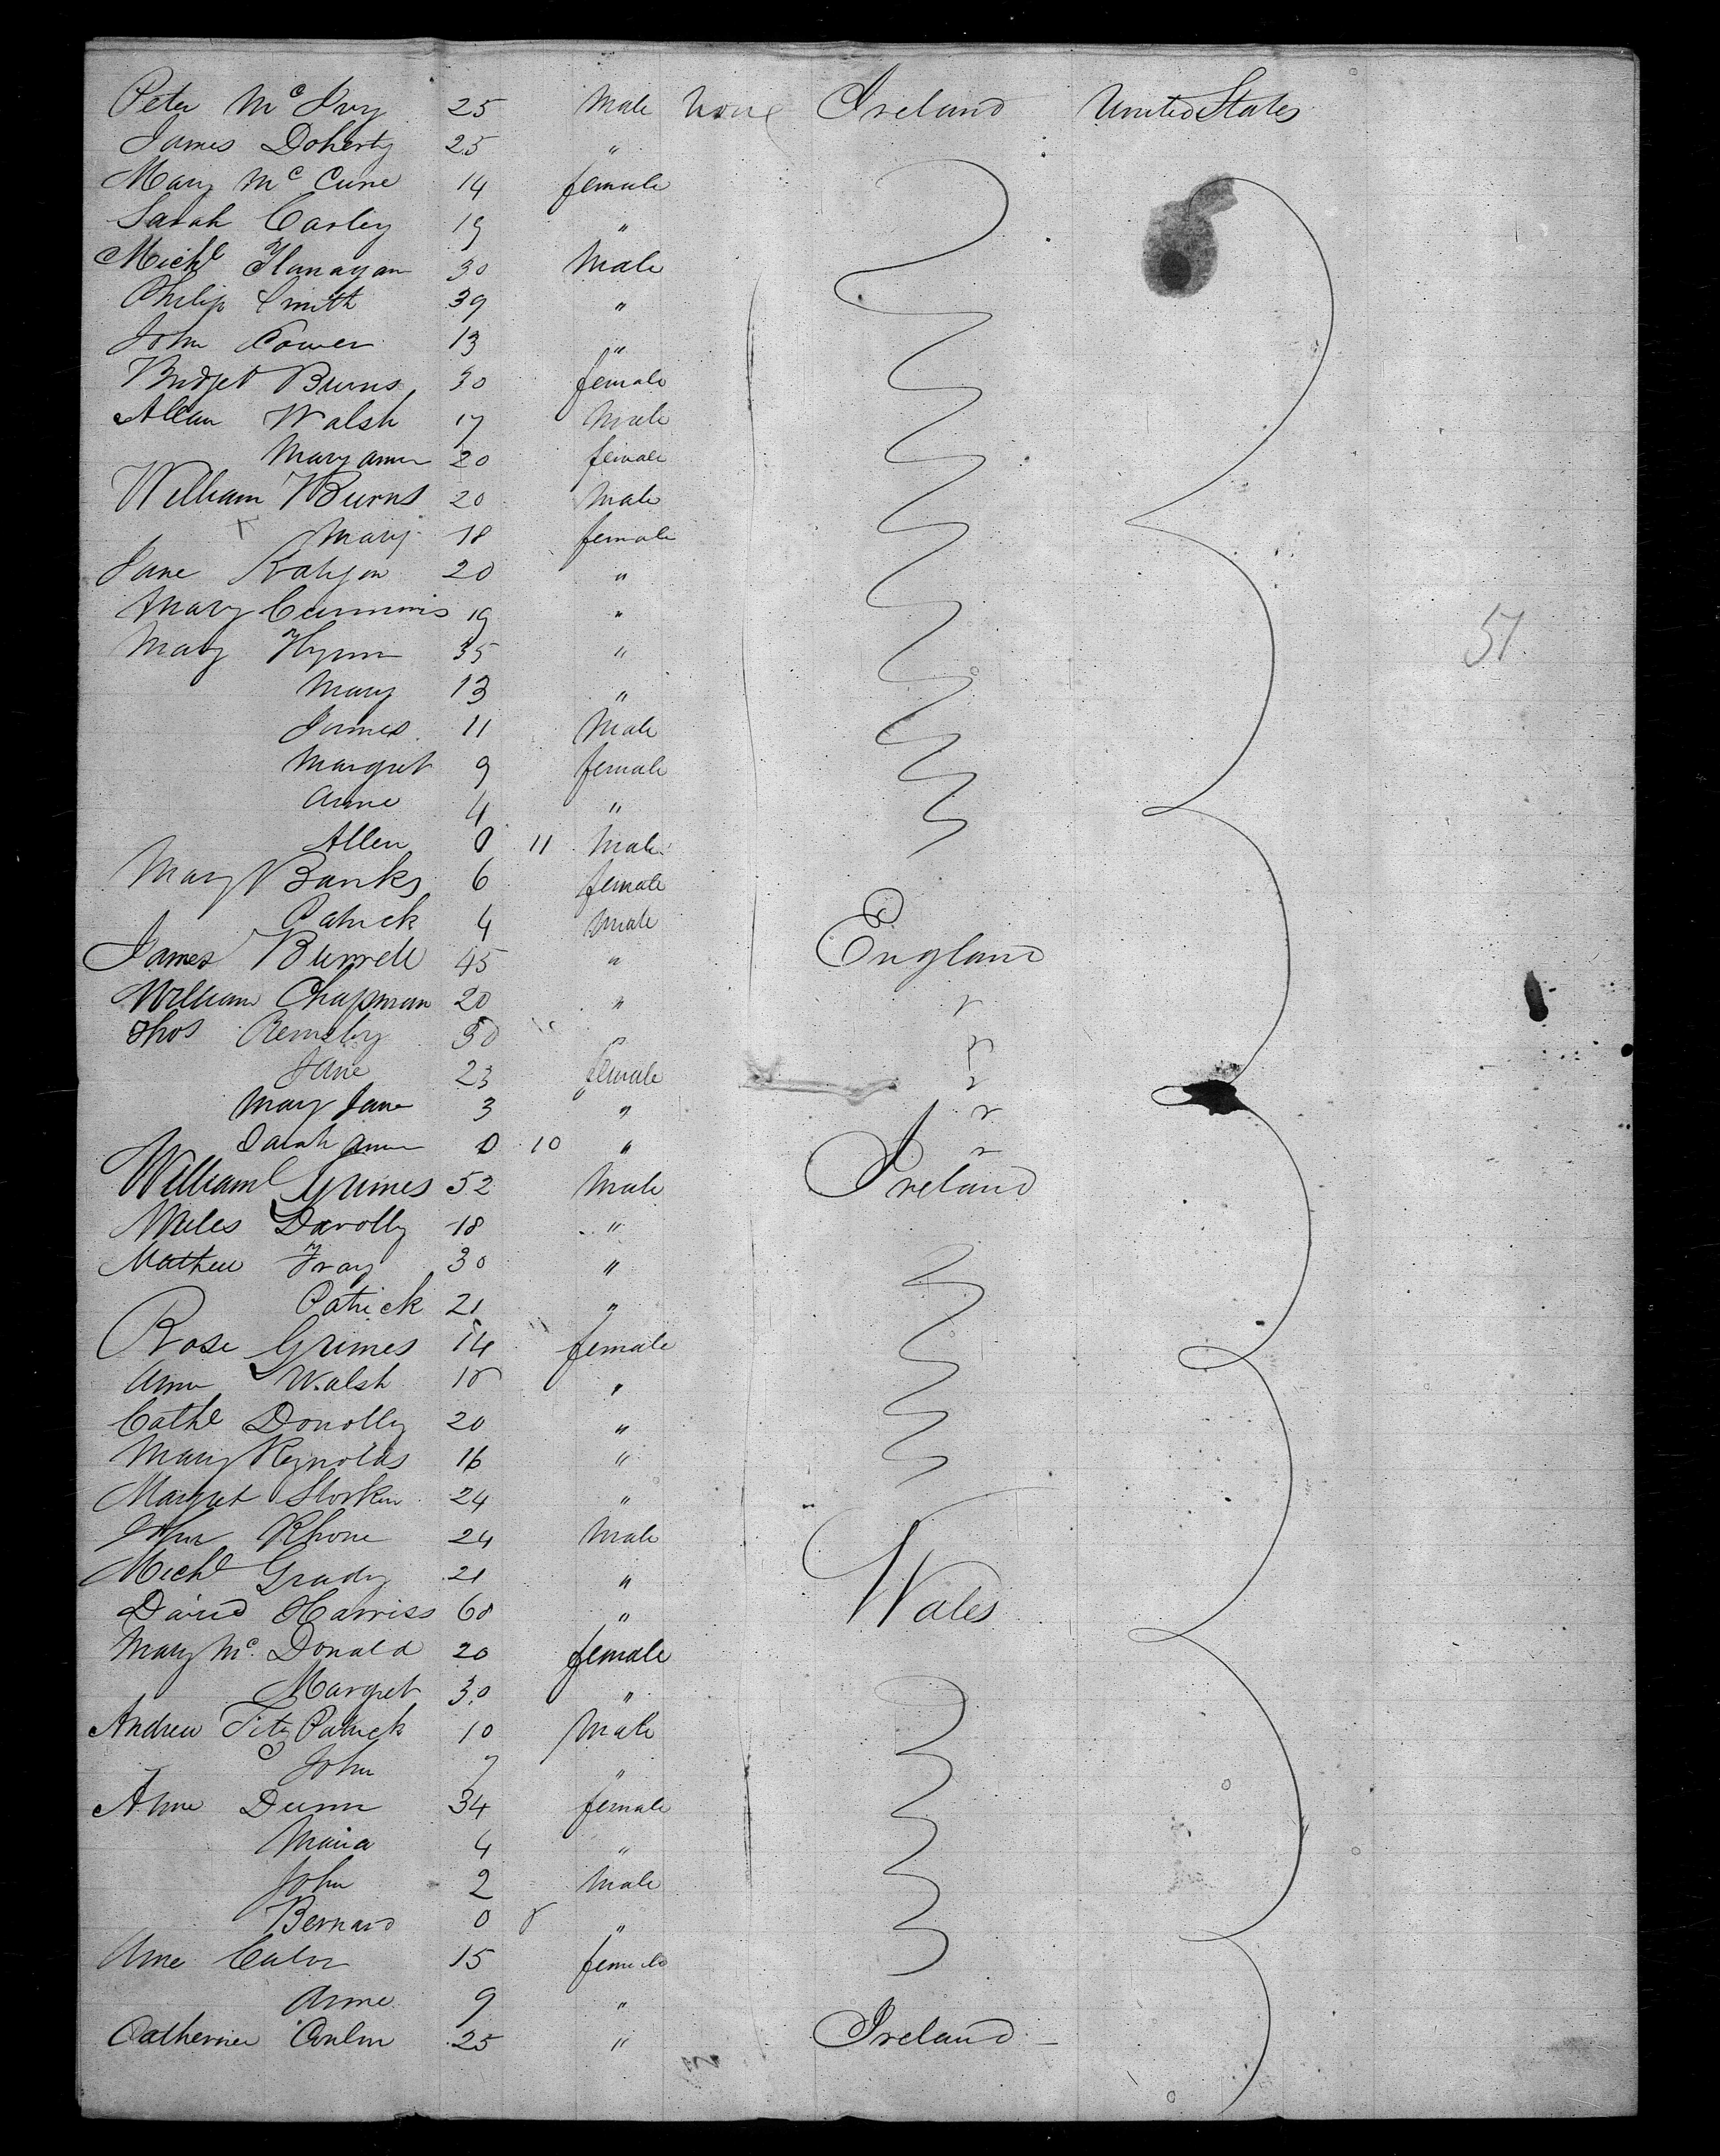 Peter Mc Ivry 25 Male None Ireland United States
James Doherty 25 "
Mary Mc Cune 14 female
Sarah Carley 19 "
Michl Flanagan 30 Male
Philip Smith 39 "
John Power 13 "
Bridget Burns 30 female
Allan Walsh 17 Male
Mary ann 20 female
William Burns 20 Male
Mary 18 female
Jane 20 "
Mary Cummins 19 "
Mary Flynn 35 "
Mary 13 "
James 11 Male
Margret 9 female
Anne 4 "
Allen 0 11 Male
Mary Banks 6 female
Patrick 4 Male
James Burrell 45 " England
William Chapman 20 "
Thos 30
Jane 23 female
Mary Jane 3 "
Sarah Ann 0 10 "
William Grimes 52 Male Ireland
Miles Davolly 18 "
Mathew Fray 30 "
Patrick 21 "
Rose Grimes 14 female
Ann Walsh 18 "
Cathe Donolly 20 "
Mary Reynolds 16 "
Margret 24 "
John Rhone 24 Male
Michl Grady 21 "
David Harriss 60 " Wales
Mary Mc Donald 20 female
Margret 30 "
Andrew Fitz Patrick 10 Male
John 7 "
Anne Dunn 34 female
Maria 4 "
John 2 Male
Bernard 0 8 "
Ane 15 female
Anne 9 "
Catherine Conlon 25 " Ireland
51